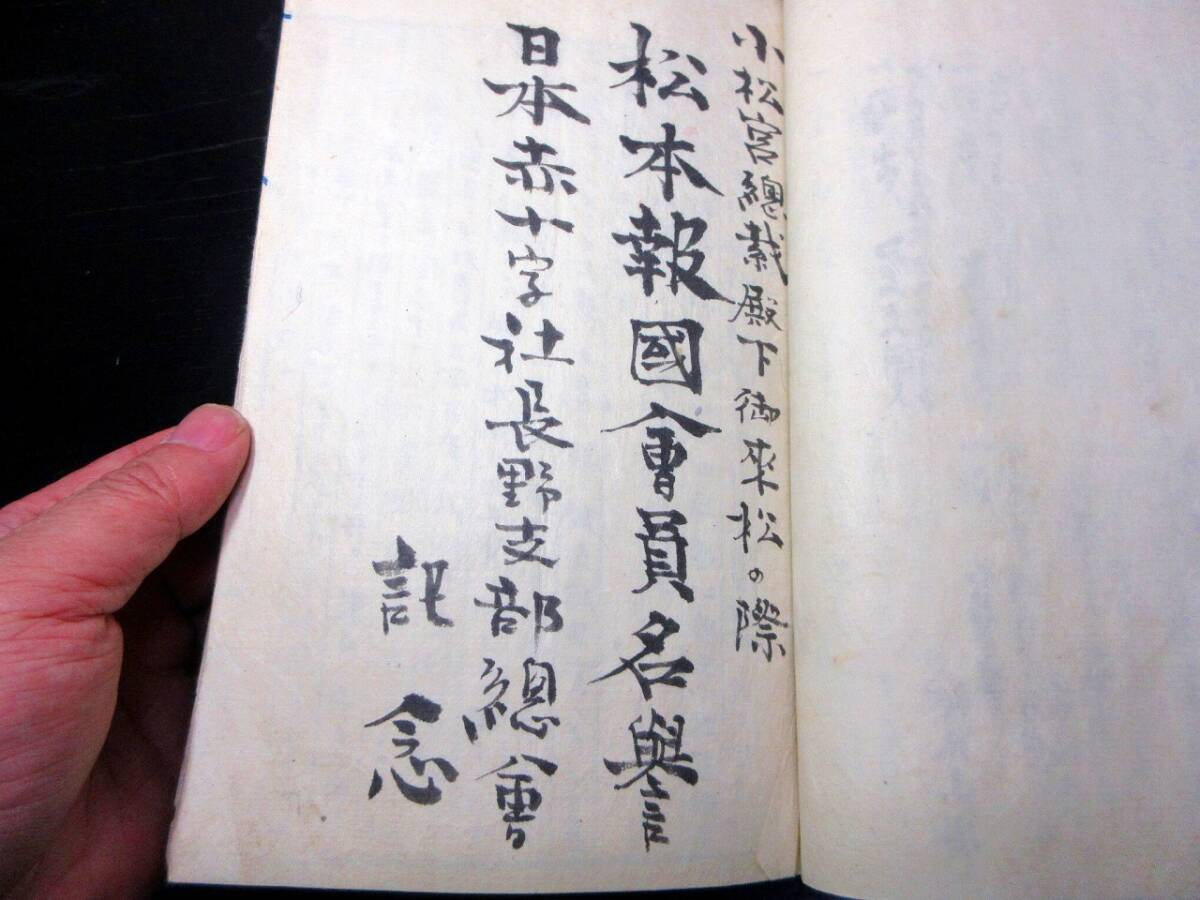 小松宮總裁殿下御来松の際
松本報國會員名譽
日本赤十字社長野支部總會
記念